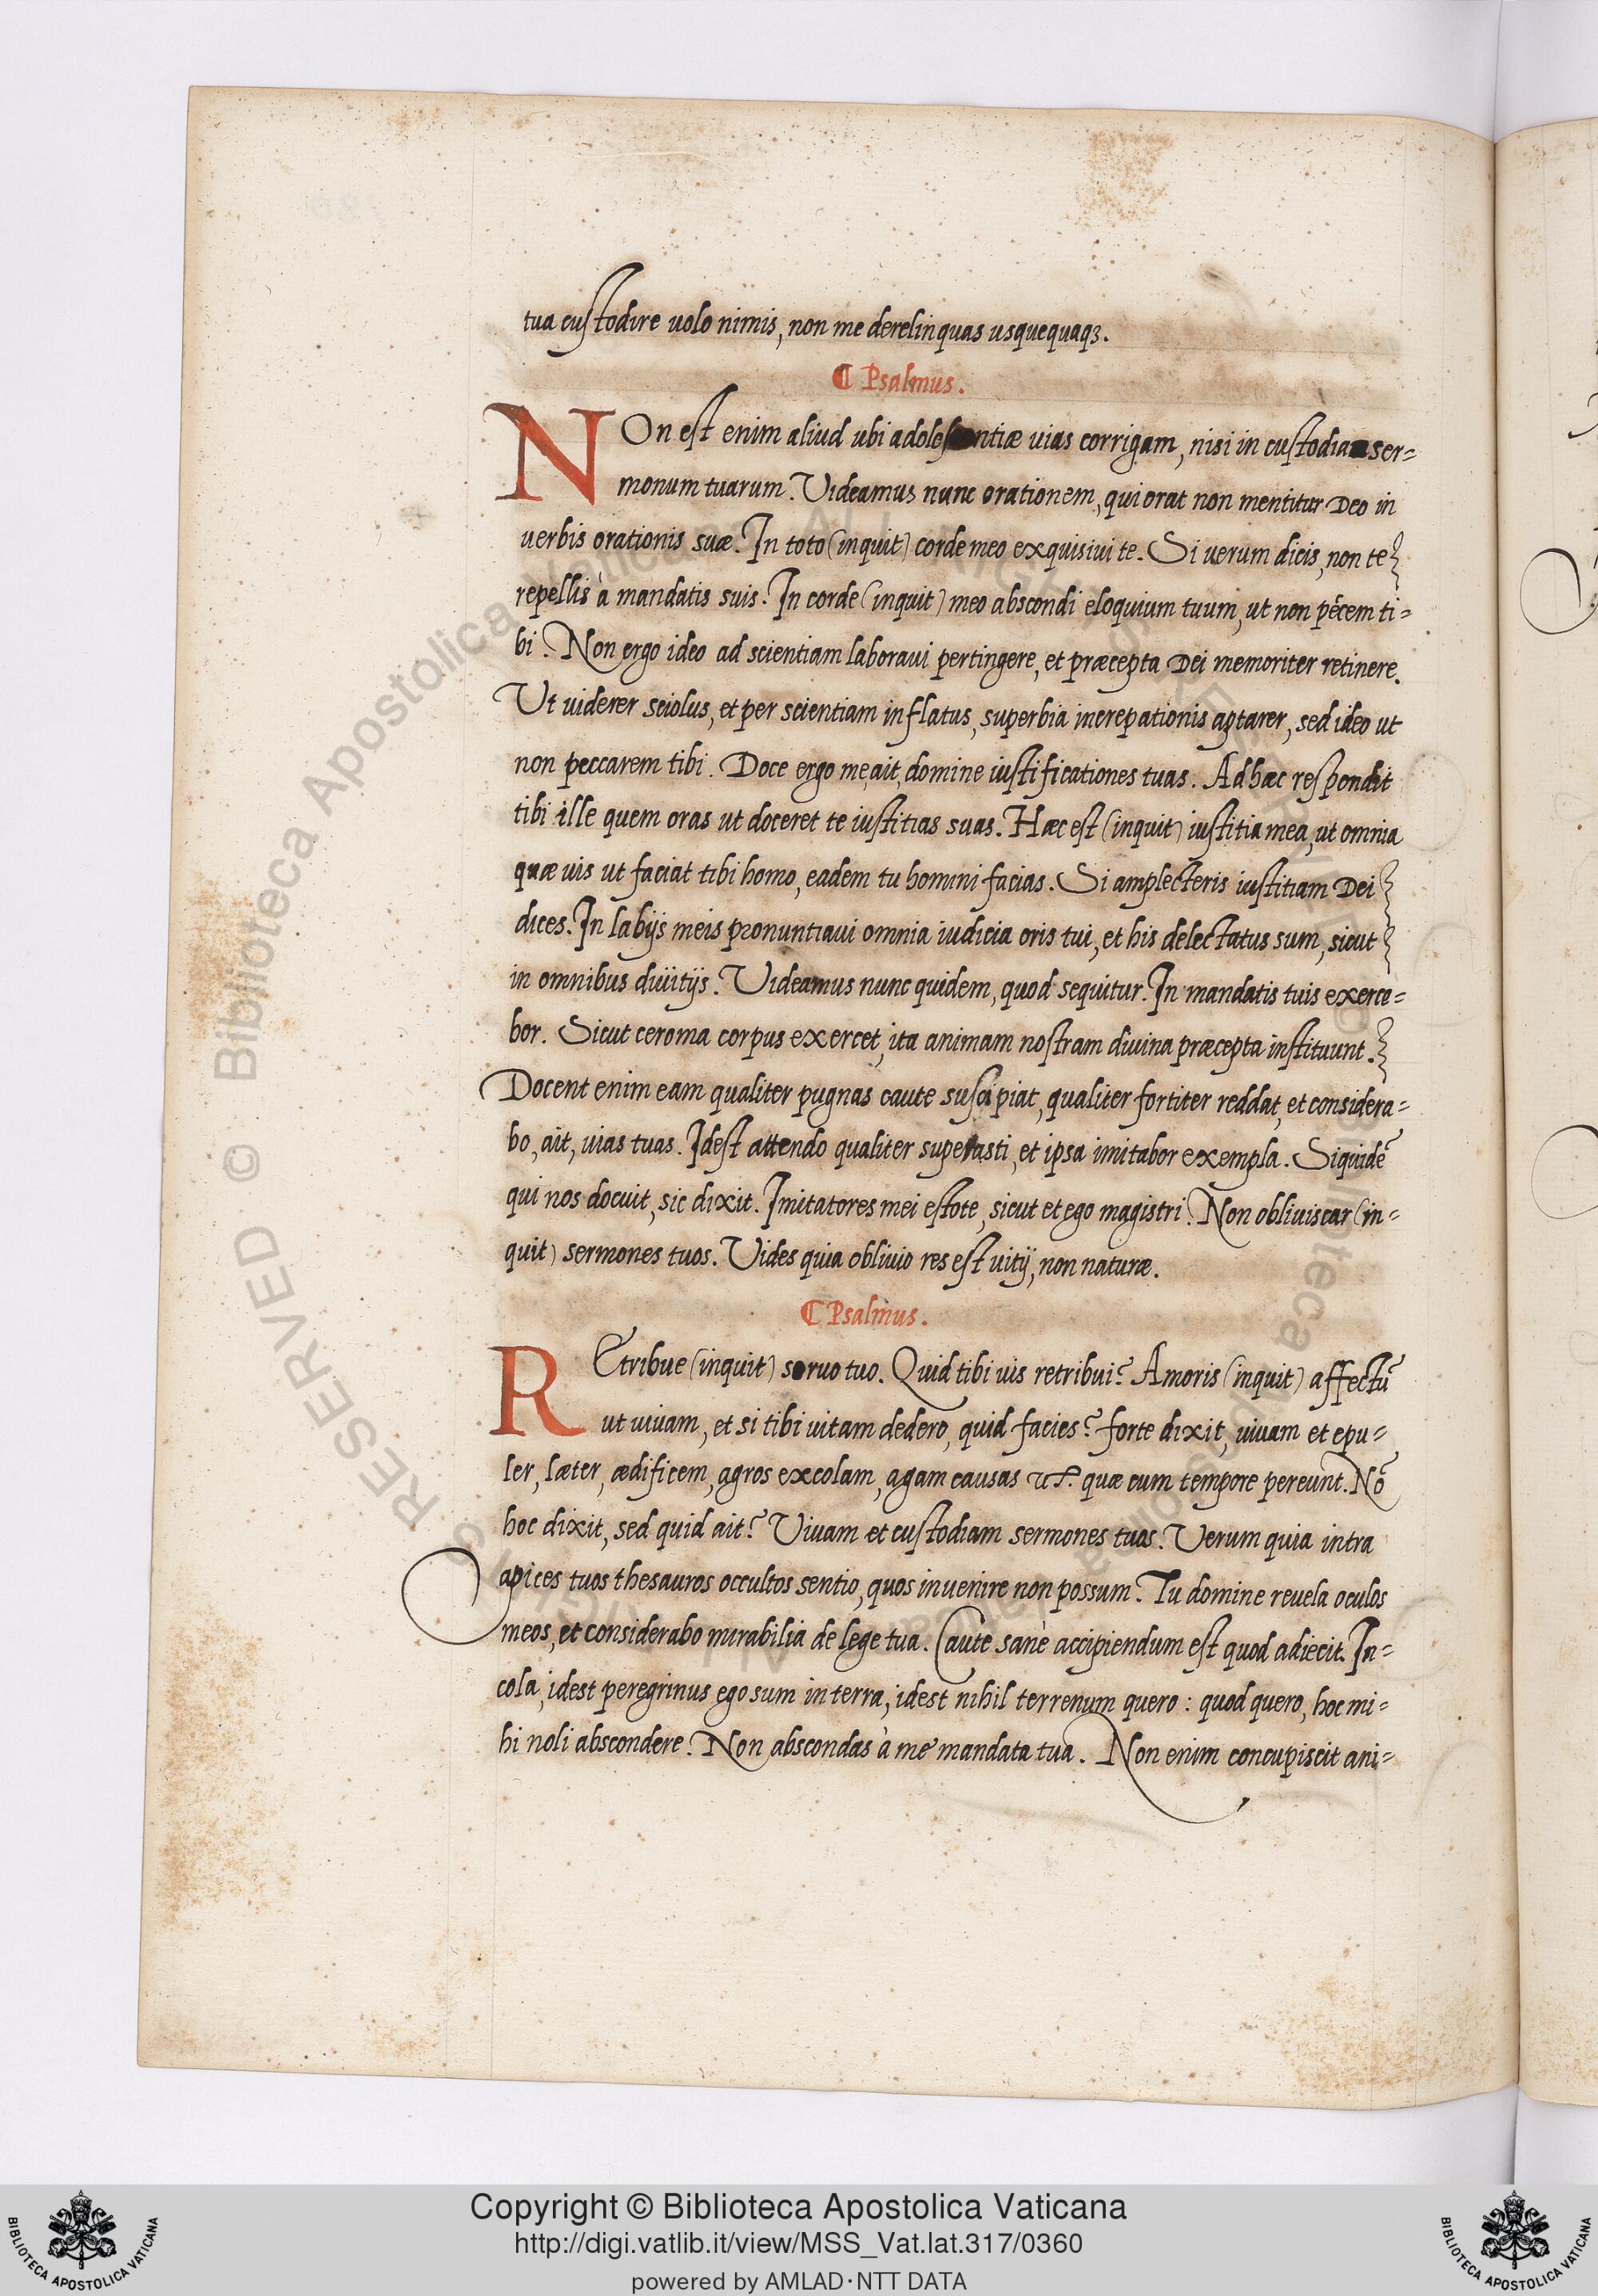 tua custodire uolo nimis, non me derelinquas usquequaqꝫ.
¶ Psalmus.
NOn est enim aliud ubi adolescentiæ uias corrigam, nisi in custodia ser-
monum tuarum. Videamus nunc orationem, qui orat non mentitur Deo in
uerbis orationis suæ. In toto (inquit) corde meo exquisiui te. Si uerum dicis, non te
repellis à mandatis suis. In corde (inquit) meo abscondi eloquium tuum, ut non pēcem ti-
bi. Non ergo ideo ad scientiam laboraui pertingere, et præcepta Dei memoriter retinere.
Ut uiderer sciolus, et per scientiam inflatus, superbia increpationis aptarer, sed ideo ut
non peccarem tibi. Doce ergo me, ait, domine iustificationes tuas. Ad hæc respondit
tibi ille quem oras ut doceret te iustitias suas. Hæc est (inquit) iustitia mea, ut omnia
quæ uis ut faciat tibi homo, eadem tu homini facias. Si amplecteris iustitiam Dei
dices. In labijs meis pronuntiaui omnia iudicia oris tui, et his delectatus sum, sicut
in omnibus diuitijs. Videamus nunc quidem, quod sequitur. In mandatis tuis exerce-
bor. Sicut ceroma corpus exercet, ita animam nostram diuina præcepta instituunt.
Docent enim eam qualiter pugnas caute suscipiat, qualiter fortiter reddat, et considera-
bo, ait, uias tuas. Idest attendo qualiter superasti, et ipsa imitabor exempla. Siquidē
qui nos docuit, sic dixit. Imitatores mei estote, sicut et ego magistri. Non obliuiscar (in-
quit) sermones tuos. Vides quia obliuio res est uitij, non naturæ.
¶ Psalmus.
REtribue (inquit) seruo tuo. Quid tibi uis retribui? Amoris (inquit) affectū
ut uiuam, et si tibi uitam dedero, quid facies? forte dixit, uiuam et epu-
ler, læter, ædificem, agros excolam, agam causas &c. quæ cum tempore pereunt. Nō
hoc dixit, sed quid ait? Viuam et custodiam sermones tuos. Verum quia intra
apices tuos thesauros occultos sentio, quos inuenire non possum. Tu domine reuela oculos
meos, et considerabo mirabilia de lege tua. Caute sanè accipiendum est quod adiecit. In-
cola, idest peregrinus ego sum in terra, idest nihil terrenum quero: quod quero, hoc mi-
hi noli abscondere. Non abscondas à me mandata tua. Non enim concupiscit ani-
Copyright © Biblioteca Apostolica Vaticana
http://digi.vatlib.it/view/MSS_Vat.lat.317/0360
powered by AMLAD·NTT DATA